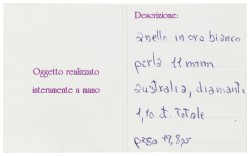 Oggetto realizzato
interamente a mano
Descrizione:
anello in oro bianco
perla 11 mm
australia, diamanti
1,10 ct. totale
peso 19,8 gr